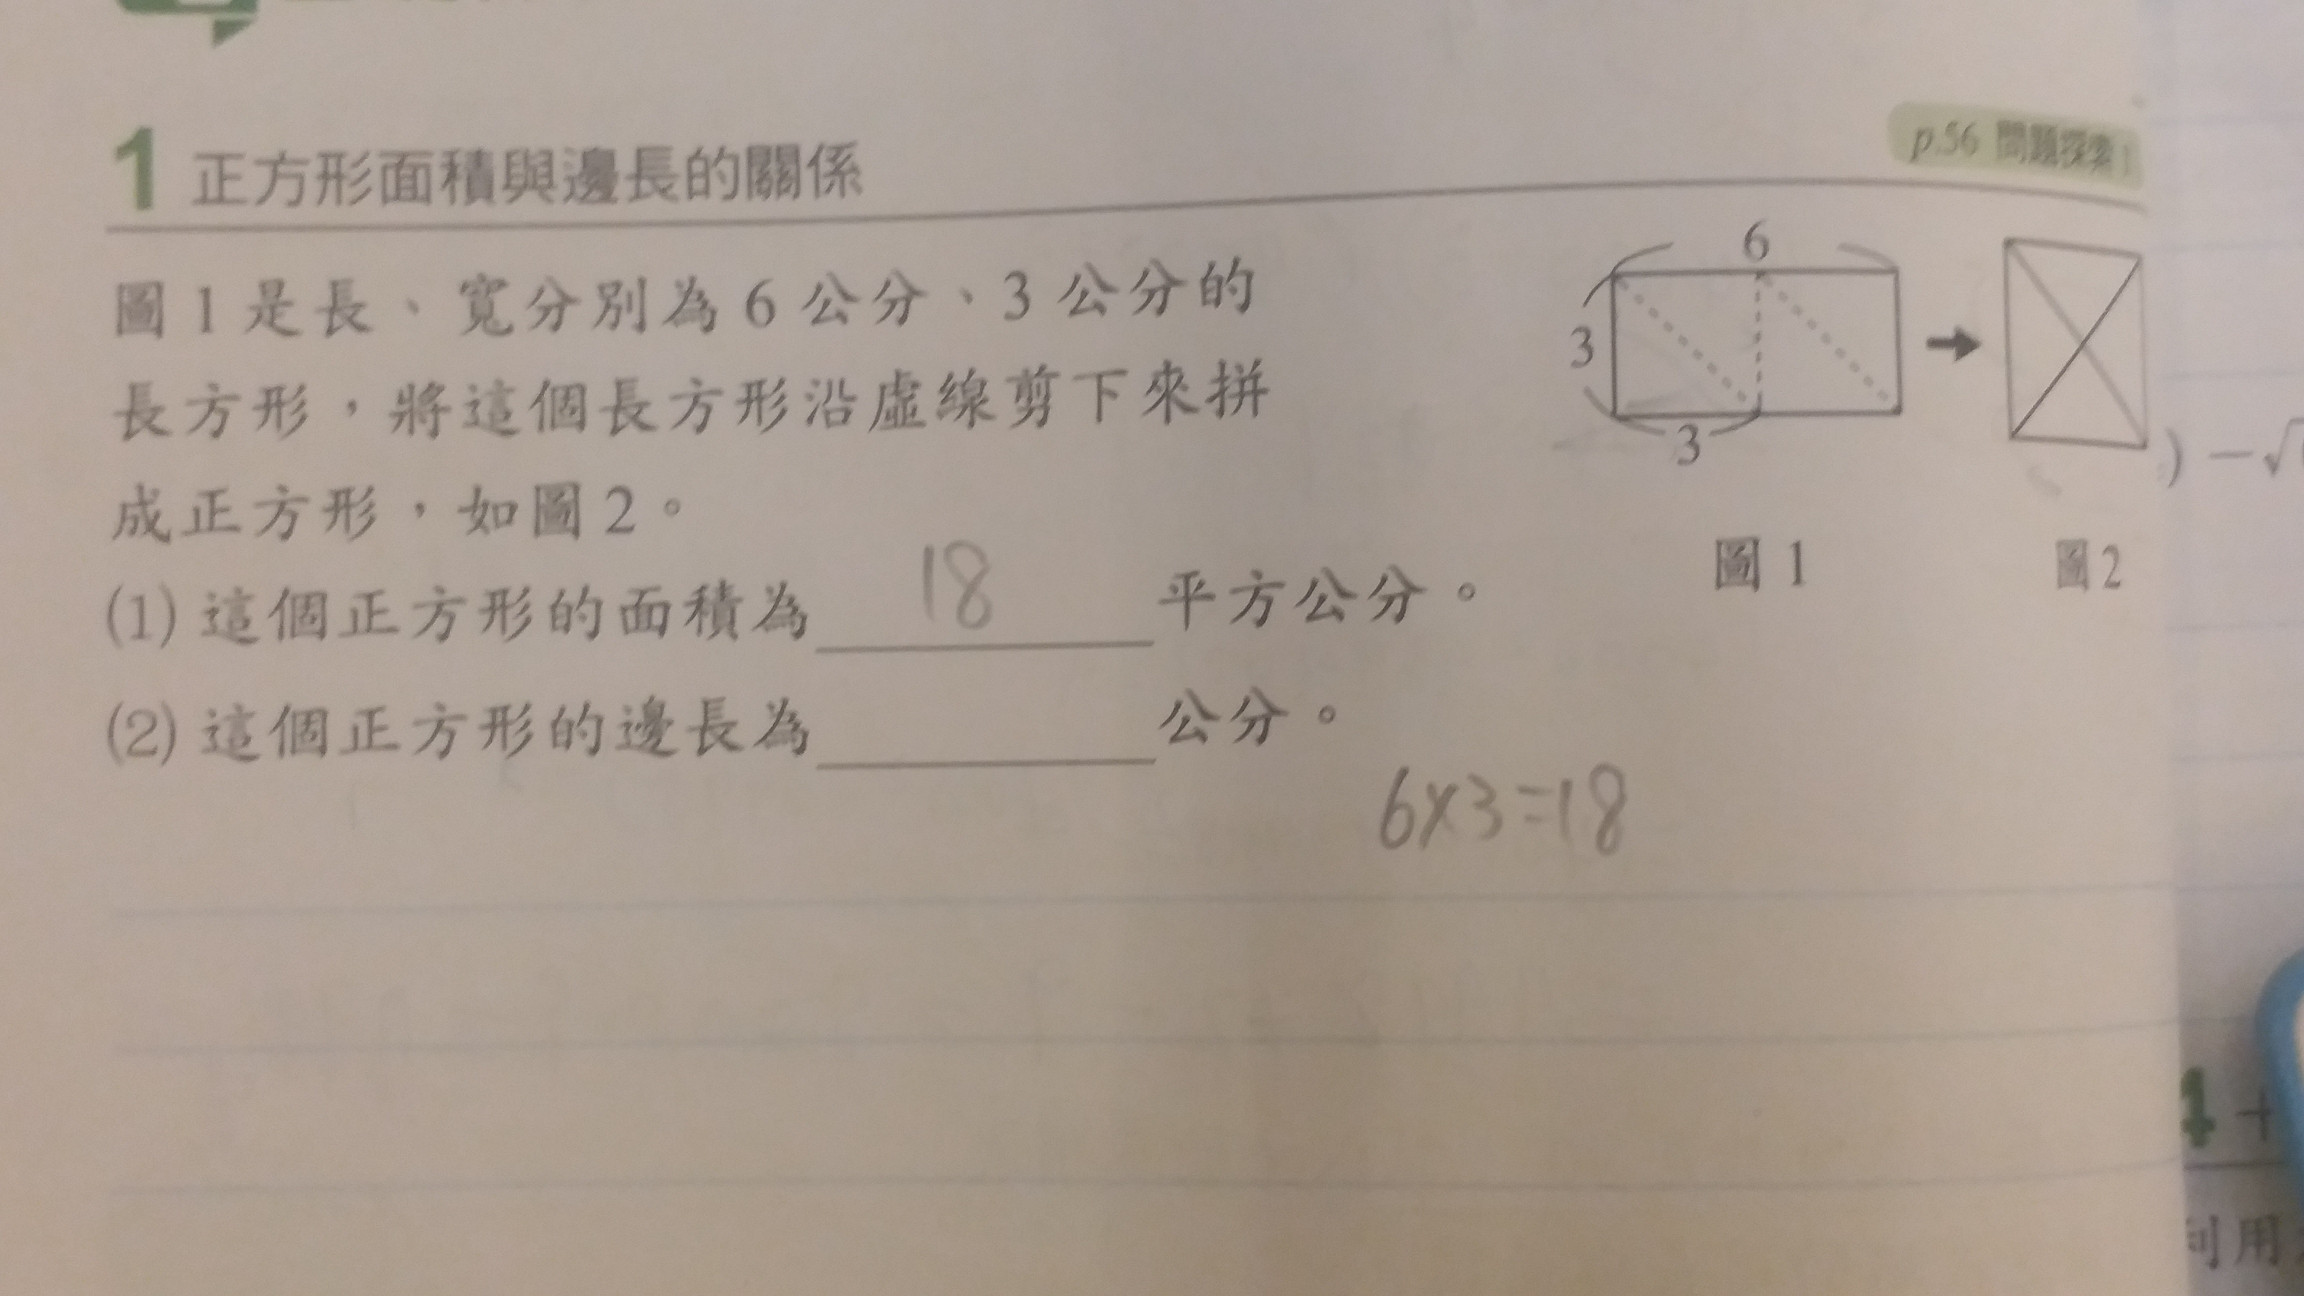 1 正方形面積與邊長的關係
p.56 問題探索1
圖1是長、寬分別為6公分、3公分的
長方形，將這個長方形沿虛線剪下來拼
成正方形，如圖2。
6
3
3
圖1
圖2
(1) 這個正方形的面積為 18 平方公分。
(2) 這個正方形的邊長為＿＿＿公分。
6×3=18
) −√
4
利用